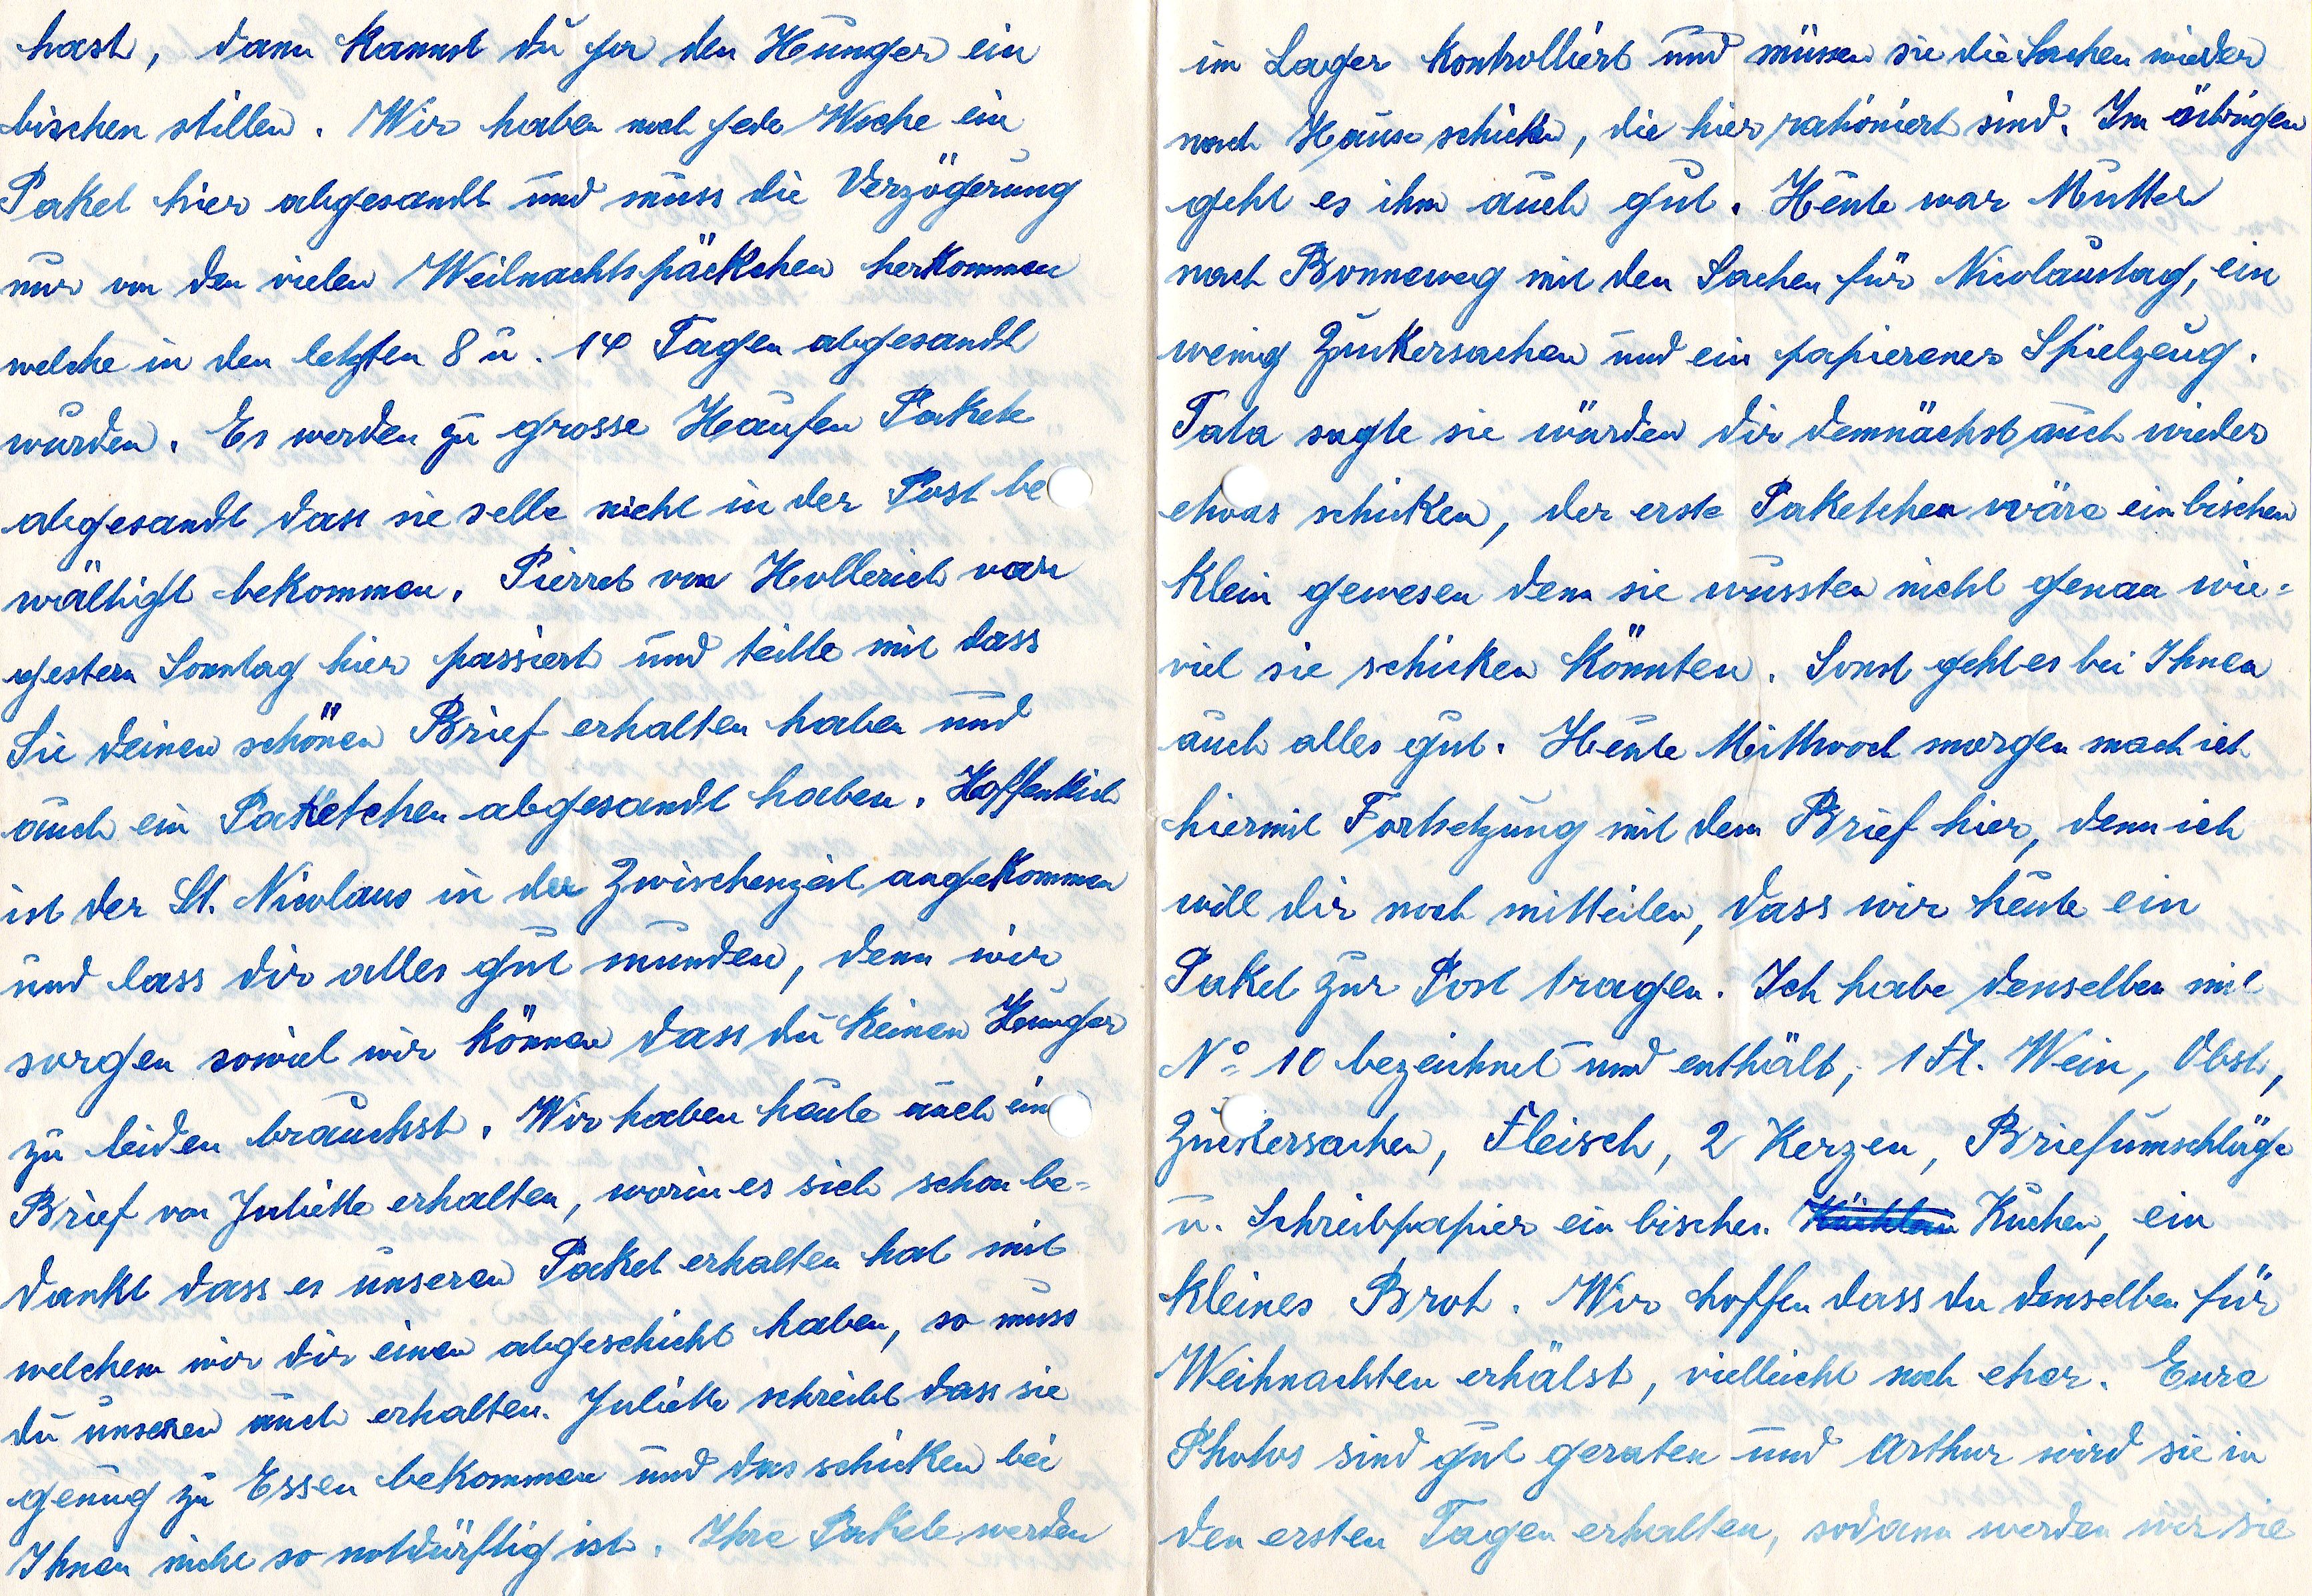 hast, dann kannst du ja den Hunger ein
bischen stillen. Wir haben noch jede Woche ein
Paket hier abgesandt und muss die Verzögerung
nur von den vielen Weihnachtspäckchen herkommen
welche in den letzten 8 u. 14 Tagen abgesandt
wurden. Es werden zu grosse Haufen Pakete
abgesandt dass sie selbe nicht in der Post be
wältigt bekommen. Pierret von Hollerich war
gestern Sonntag hier passiert und teilte mit dass
Sie deinen schönen Brief erhalten haben und
auch ein Paketchen abgesandt haben. Hoffentlich
ist der St. Nicolaus in der Zwischenzeit angekommen
und lass dir alles gut munden, denn wir
sorgen soviel wir können dass du keinen Hunger
zu leiden brauchst. Wir haben heute auch ein
Brief von Juliette erhalten, worin es sich schon be=
dankt dass es unseren Paket erhalten hat mit
welchem wir dir einen abgeschickt haben, so muss
du unseren auch erhalten. Juliette schreibt dass sie
genug zu Essen bekommen und das schicken bei
Ihnen nicht so notdürftig ist. Ihre Pakete werden
im Lager kontrolliert und müssen sie die Sachen wieder
nach Hause schicken, die hier rationiert sind. Im übrigen
geht es ihm auch gut. Heute war Mutter
nach Bonneweg mit den Sachen für Nicolaustag, ein
wenig Zuckersachen und ein papierenes Spielzeug.
Tata sagte sie würden dir demnächst auch wieder
etwas schicken, der erste Paketchen wäre ein bischen
klein gewesen denn sie wussten nicht genau wie=
viel sie schicken könnten. Sonst geht es bei Ihnen
auch alles gut. Heute Mittwoch morgen mach ich
hiermit Fortsetzung mit dem Brief hier, denn ich
will dir noch mitteilen, dass wir heute ein
Paket zur Post tragen. Ich habe denselben mit
No 10 bezeichnet und enthält, 1 Fl. Wein, Obst,
Zuckersachen, Fleisch, 2 Kerzen, Briefumschläge
u. Schreibpapier ein bischen Kuchen, ein
kleines Brot. Wir hoffen dass du denselben für
Weihnachten erhälst, vielleicht noch eher. Eure
Photos sind gut geraten und Arthur wird sie in
den ersten Tagen erhalten, sodann werden wir sie